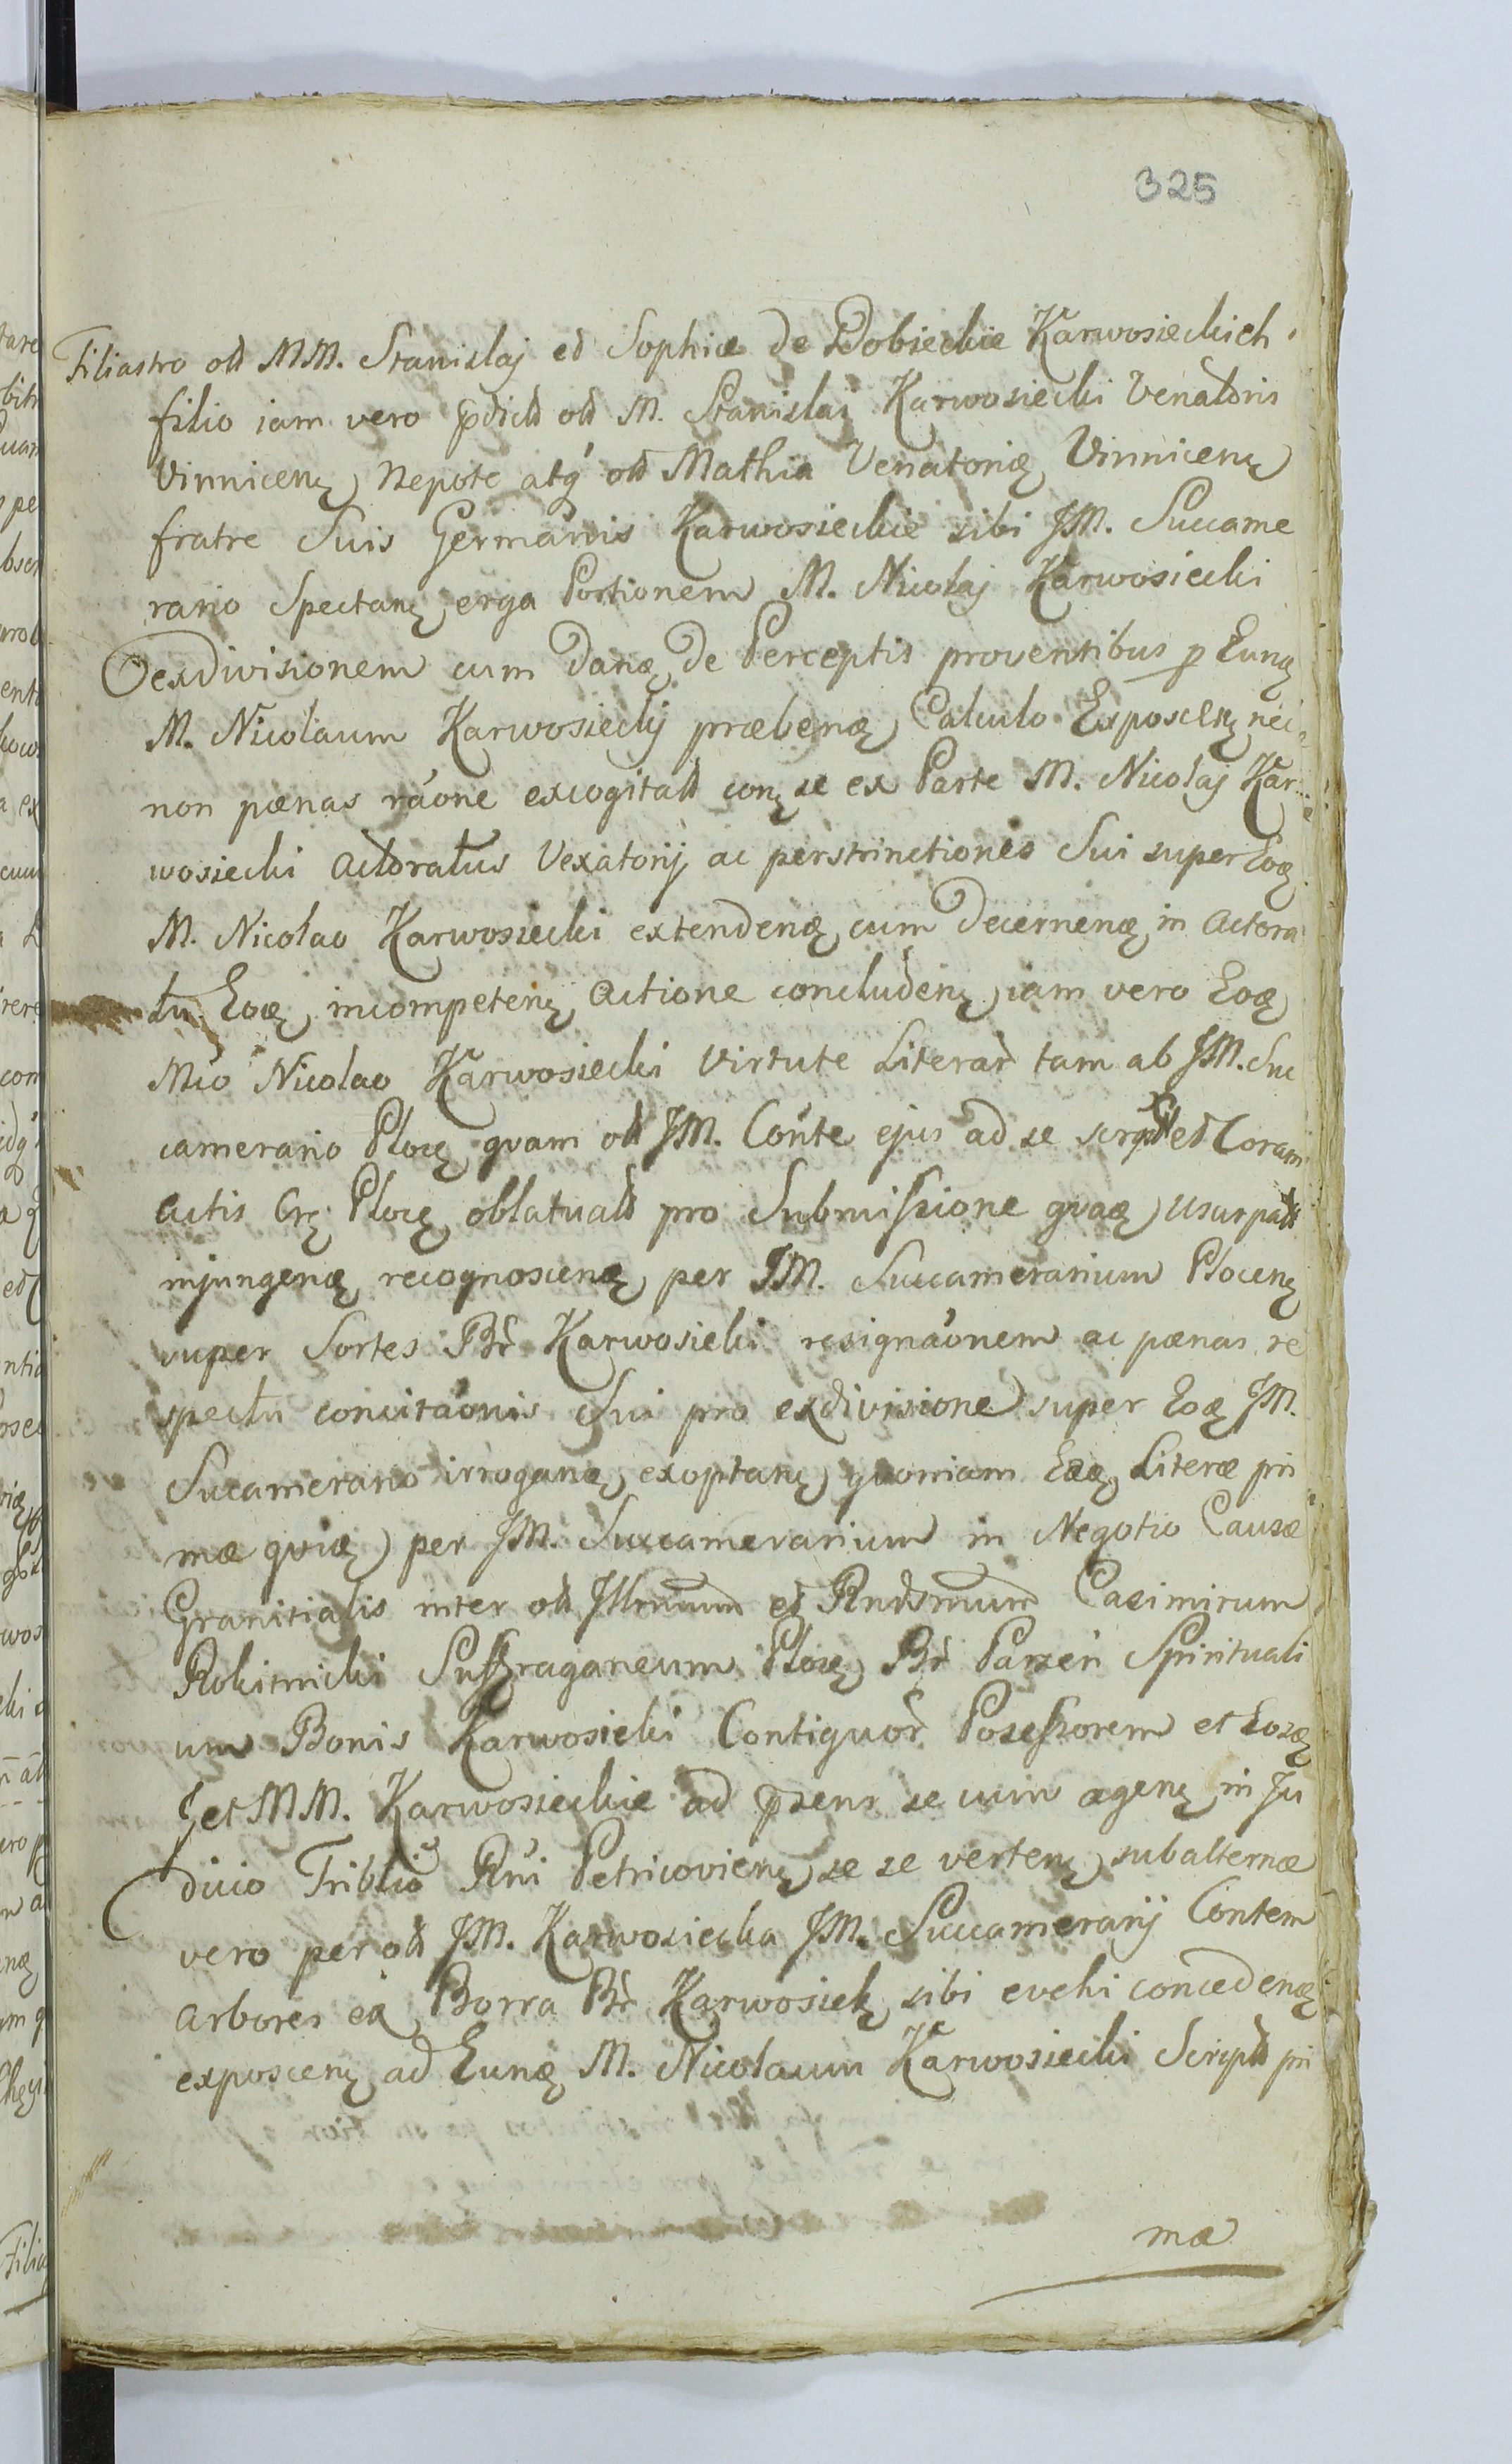 325
Filiastro olł MM. Stanislaj et Sophiæ de Dobieckie Karwosieckich
filio iam vero pdictł olł M. Stanislaj Karwosiecki Venatoris
Vinnicenę Nepote atq olł Mathia Venatorię Vinnicenę
fratre Suis Germanis Karwosieckie sibi JM. Succame
rario Spectanę erga Portionem M. Nicolaj Karwosiecki
exdivisionem cum danę de Perceptis proventibus p Eunę
M. Nicolaum Karwosiecky præbenę Calculo Exposcenę nec
non pænas ráone excogitatł conę se ex Parte M. Nicolaj Kar
wosiecki Actoratus Vexatorij ac perstrinctiones Sui super Eoę
M. Nicolao Karwosiecki extendenę cum decernenę in Actora
tu Eoę incompetenę Actione concludenę iam vero Eoę
Mco Nicolao Karwosiecki Virtute Literar tam ab JM. Suc
camerario Plocę quam olł JM. Conte ejus ad se scrptł et Coram
Actis Crę Plocę oblatuatł pro Submissione quaę Usurpatł
injungenę recognoscenę per JM. Succamerarium Plocenę
super Sortes Br Karwosieki resignáonem ac pænas re
spectu concitáonis Sui pro exdivisione super Eoę JM.
Succamerario irroganę exoptanę quoniam Eæę Literæ pri
mæ quię per JM. Succamerarium in Negotio Causæ
Granicialis inter olł Jllrmum et Rndsmum Casimirum
Rokitnicki Suffraganeum Plocę Br Parzen Spirituali
um Bonis Karwosieki Contiguor Possessorem et Eosę
J et MM. Karwosieckie ad psens se cum agenę in Ju
dicio Triblio Rni Petricovienę se se vertenę subalternæ
vero per olł JM. Karwosiecka JM. Succamerarij Contem
arbores ex Borra Br Karwosiek sibi evehi concedenę
exposcenę ad Eunę M. Nicolaum Karwosiecki Scriptł pri
mæ